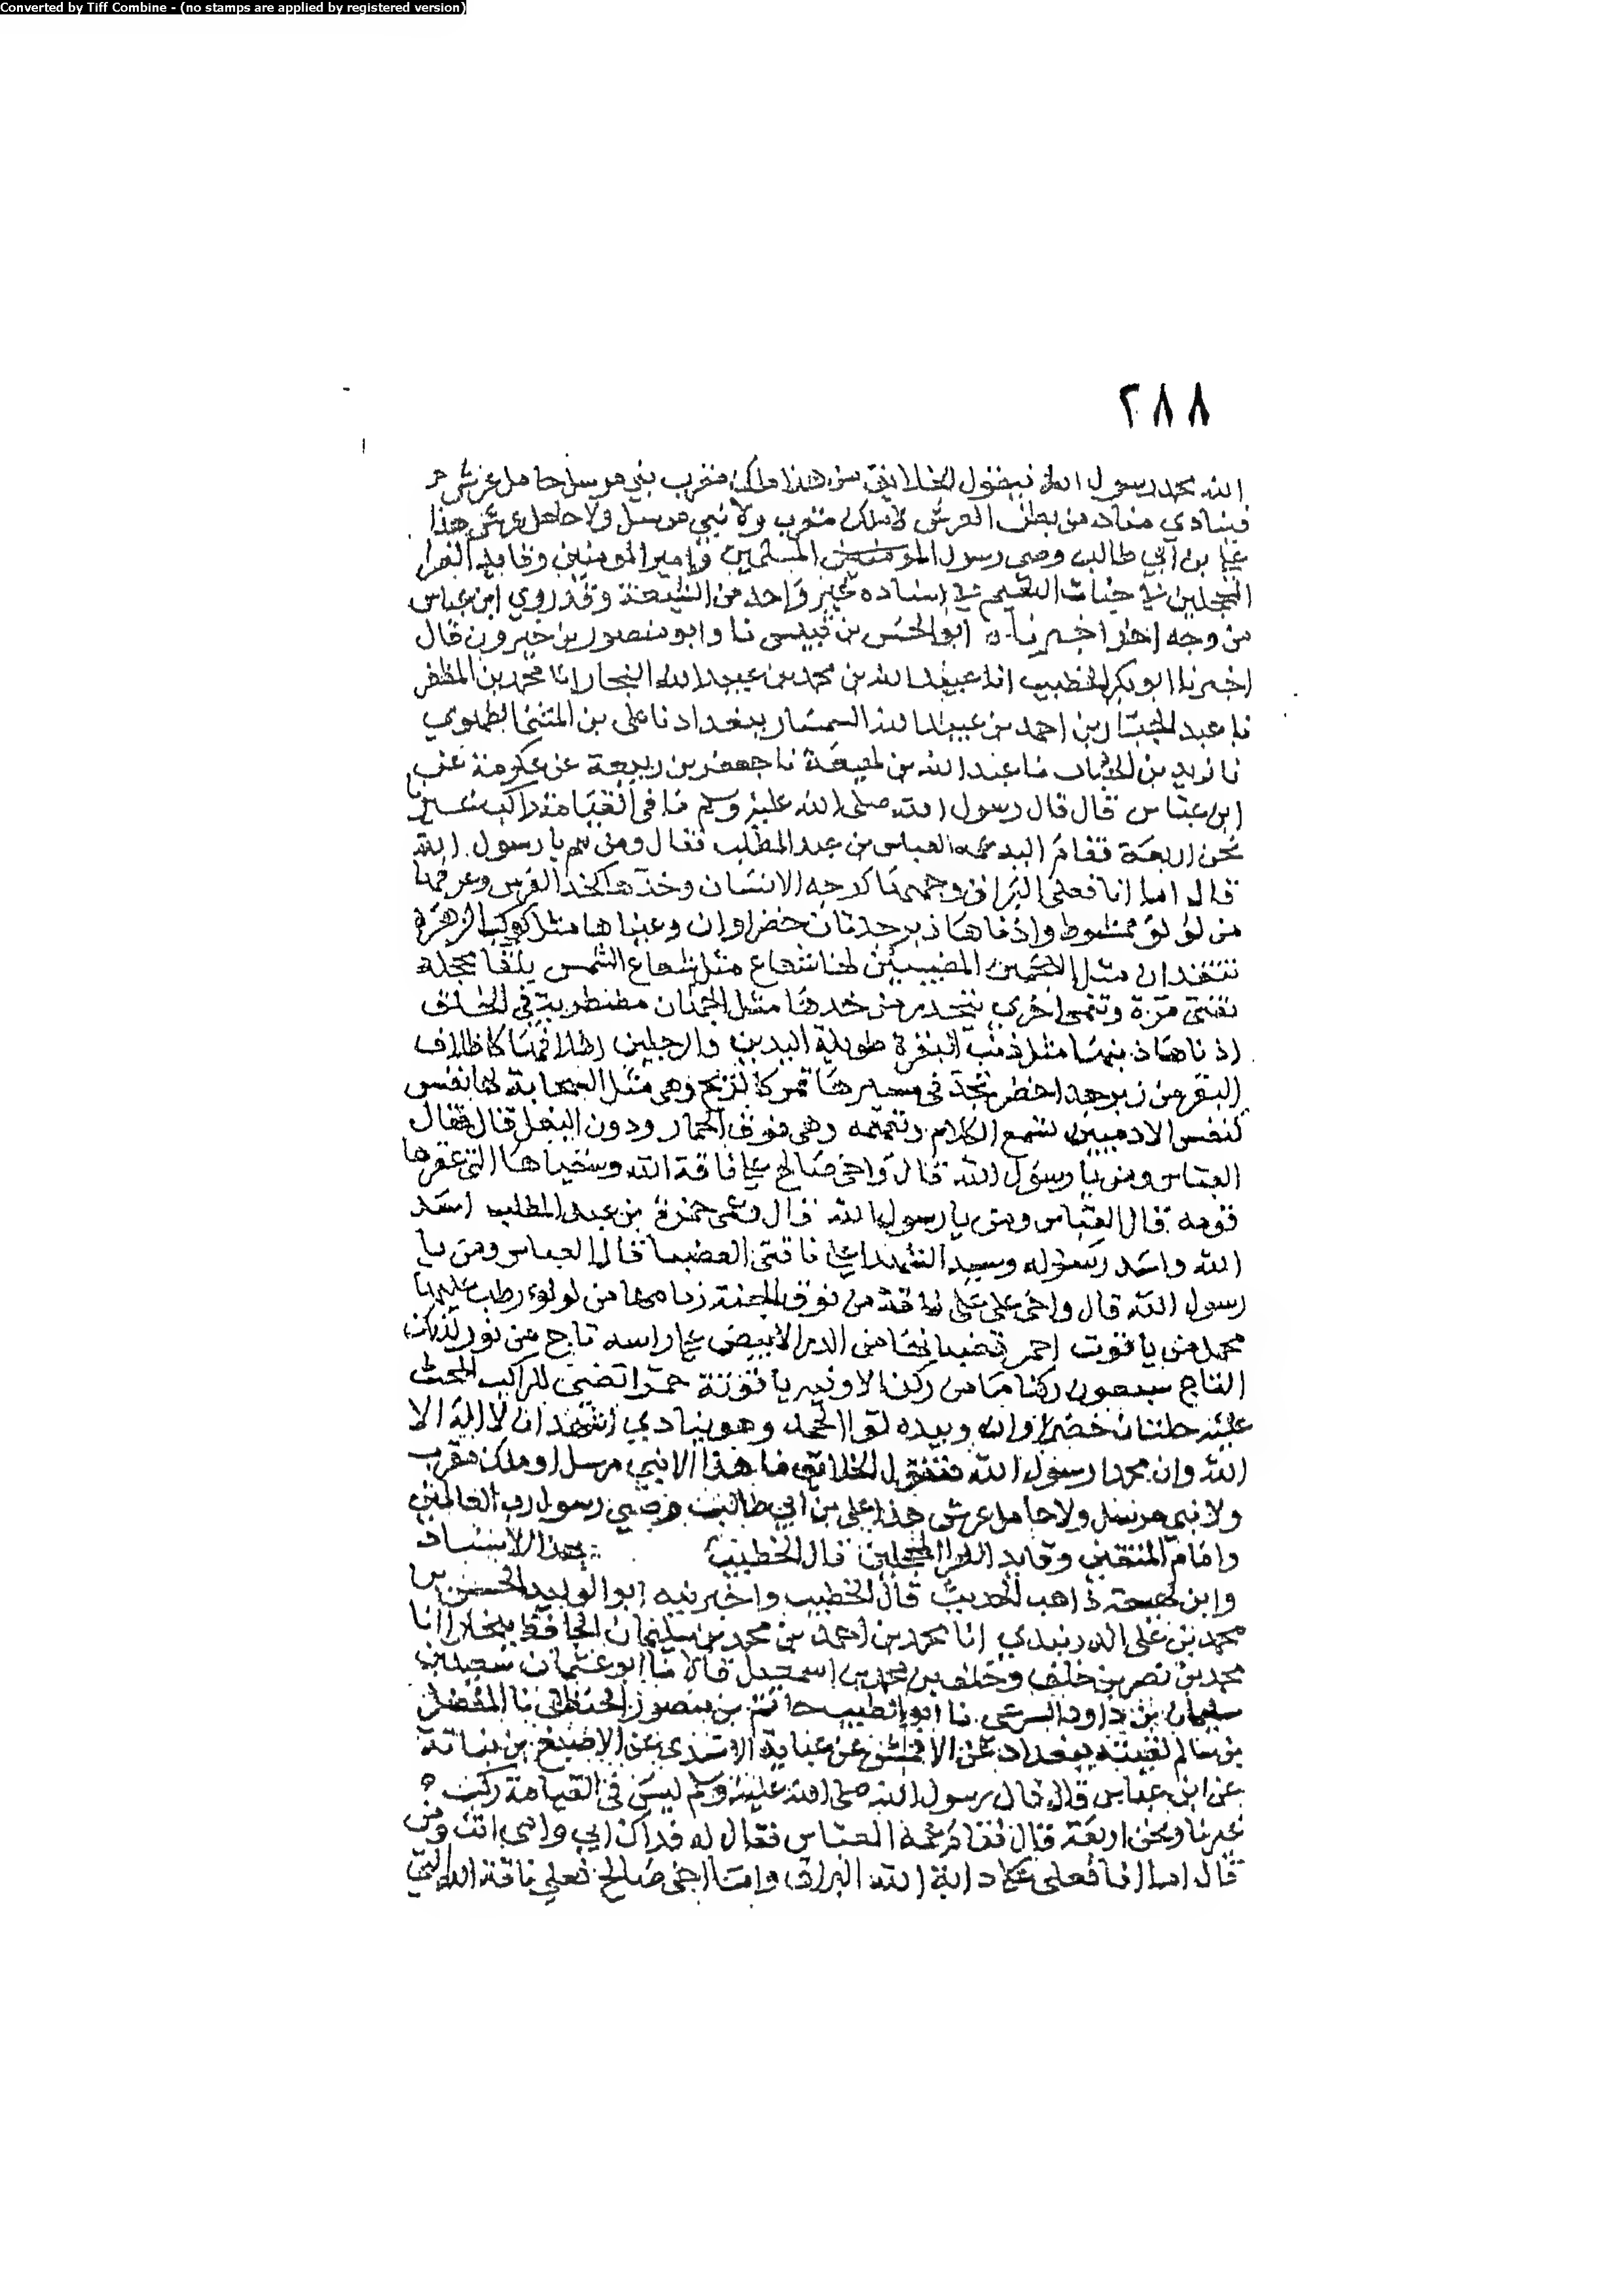 Converted by Tiff Combine - (no stamps are applied by registered version)
٢٨٨
الله محمد رسول الله فيقول الخلائق من هذا ملك مقرب نبي مرسل حامل عرش
فينادي مناد من بطنان العرش لا ملك مقرب ولا نبي مرسل ولا حامل عرش هذا
علي بن ابي طالب وصي رسول المسلمين وامير المومنين وقايد الغر
المحجلين في جنات النعيم في اسناده غير واحد من الشيعة وقد روي ابن عباس
من وجه اخر اخبرنا ابو الحسن بن قبيس نا وابو منصور بن خيرون قال
اخبرنا ابو بكر الخطيب انا عبيد الله بن محمد بن عبيد الله النجار انا محمد بن المظفر
نا عبد الجبار بن احمد بن عبيد الله السمسار ببغداد نا علي بن المثنى الطهوي
نا زيد بن الحباب نا عبد الله بن لهيعة نا جعفر بن ربيعة عن عكرمة عن
ابن عباس قال قال رسول الله صلى الله عليه وسلم ما في القيامة راكب غير
نحن اربعة فقام اليه عمه العباس بن عبد المطلب فقال ومن هم يا رسول الله
قال اما انا فعلى البراق وجهها كوجه الانسان وخدها كخد الفرس وعرفها
من لؤلؤ ممشوط واذناها زبرجدتان خضراوان وعيناها مثل كوكب الزهرة
تتقدان مثل النجمين المضيين لها شعاع مثل شعاع الشمس بلقا محجلة
تضي مرة وتنمي اخرى يتحدر من نحرها مثل الجمان مضطربة في الخلق
اذناها ذنبها مثل ذنب البقرة طويلة اليدين والرجلين اظلافها كاظلاف
البقر من زبرجد اخضر تجد في مسيرها تمر كالريح وهي مثل السحابة لها نفس
كنفس الادميين تسمع الكلام وتفهمه وهي فوق الحمار ودون البغل قال فقال
العباس ومن يا رسول الله قال واخي صالح على ناقة الله وسقياها التي عقرها
قومه قال العباس ومن يا رسول الله قال وعمي حمزة بن عبد المطلب اسد
الله واسد رسوله وسيد الشهدا على ناقتي العضبا قال العباس ومن يا
رسول الله قال واخي علي على ناقة من نوق الجنة زمامها من لولوء رطب عليها
محمل من ياقوت احمر قضبانها من الدر الابيض على راسه تاج من نور لذلك
التاج سبعون ركنا ما من ركن الا وفيه ياقوتة حمرا تضي للراكب المحث
عليه حلتان خضراوان وبيده لوا الحمد وهو ينادي اشهد ان لا اله الا
الله وان محمدا رسول الله فتقول الخلائق ما هذا الا نبي مرسل او ملك مقرب
ولا نبي مرسل ولا حامل عرش هذا علي بن ابي طالب وصي رسول رب العالمين
وامام المتقين وقايد الغر المحجلين قال الخطيب بهذا الاسناد
وابن لهيعة ذاهب الحديث قال الخطيب واخبرنيه ابو الوليد الحسن بن
محمد بن علي الدربندي انا محمد بن احمد بن محمد بن سليمان الحافظ ببخارا انا
محمد بن نصر بن خلف وخلف بن محمد بن اسمعيل قالا نا ابو عثمان سعيد بن
سليمان بن داود الشرعي نا ابو الطيب حاتم بن منصور الحنظلي نا المفضل
بن سالم لقيته ببغداد عن الاعمش عن عباية الاسدي عن الاصبغ بن نباتة
عن ابن عباس قال قال رسول الله صلى الله عليه وسلم ليس في القيامة راكب
غيرنا ونحن اربعة قال فقام عمه العباس فقال له فداك ابي وامي انت ومن
قال اما انا فعلى دابة الله البراق واما اخي صالح فعلى ناقة الله التي